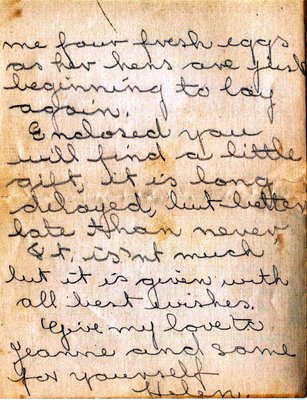 me four fresh eggs
as her hens are just
beginning to lay
again.
Enclosed you
will find a little
gift, it is long
delayed, but better
late than never
It, isn't much
but it is given with
all best wishes.
Give my love to
Jeanne and some
for yourself
Helen.